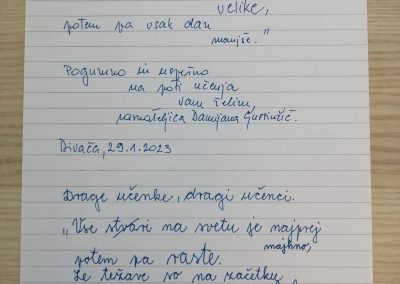 velike,
potem pa vsak dan
manjše."
Pogumno in uspešno
na poti učenja
vam želim,
ravnateljica Damijana Gustinčič.
Divača, 29.1.2023
Drage učenke, dragi učenci.
"Vse stvari na svetu je najprej
majhno,
potem pa raste.
Le težave so na začetku